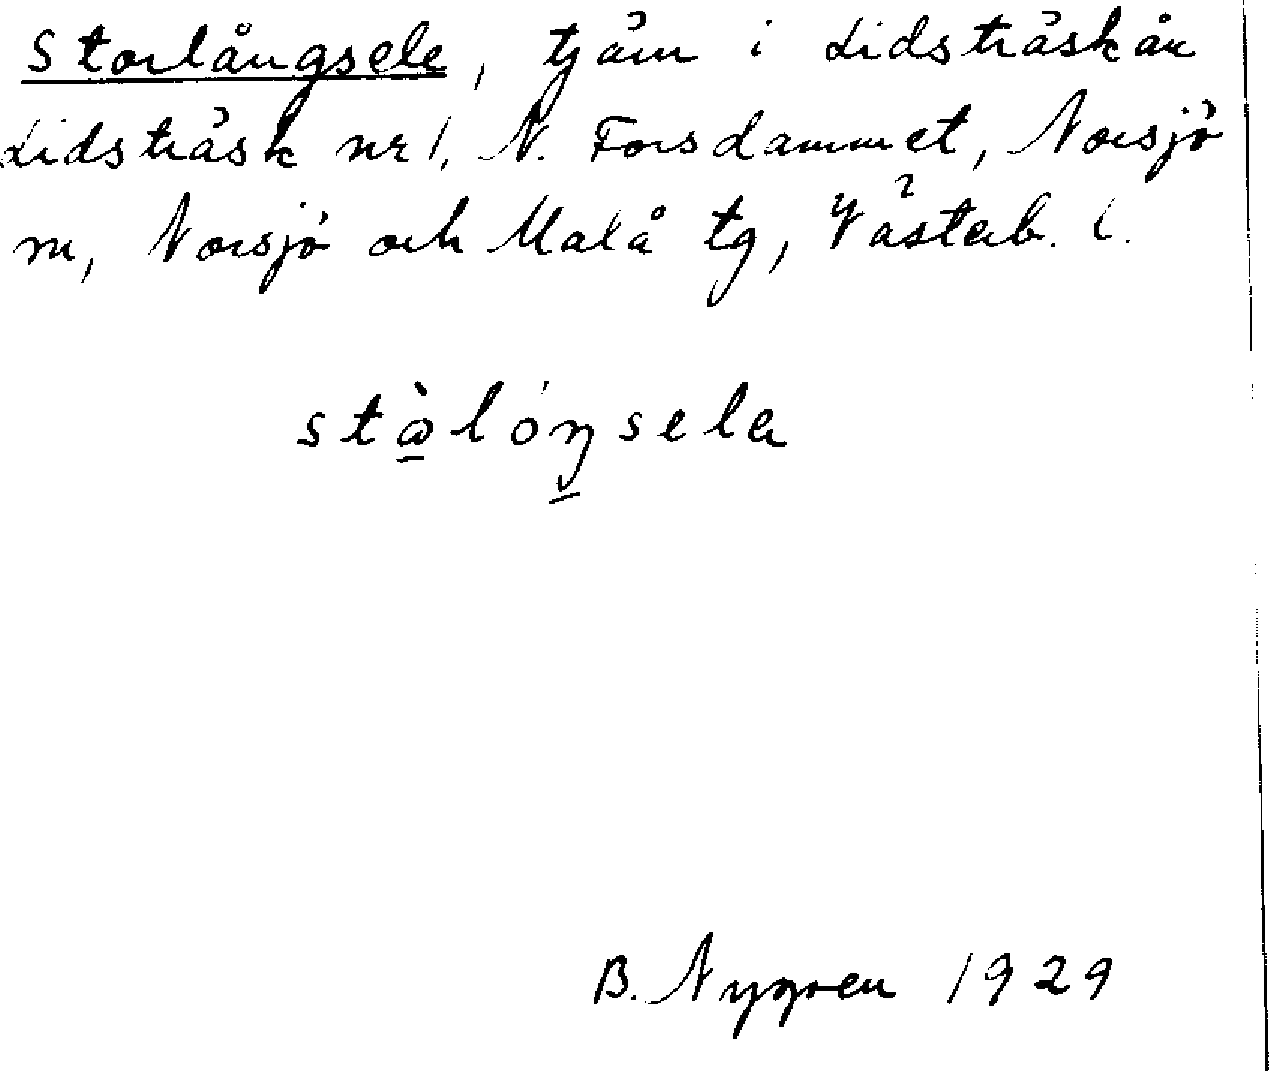 Storlångsele, tjärn i Lidsträskån
Lidsträsk nr 1, N. Forsdammet, Norsjö
sn, Norsjö och Malå tg, Västerb. l.
stɷ̀lóŋsela
B. Nygren 1929